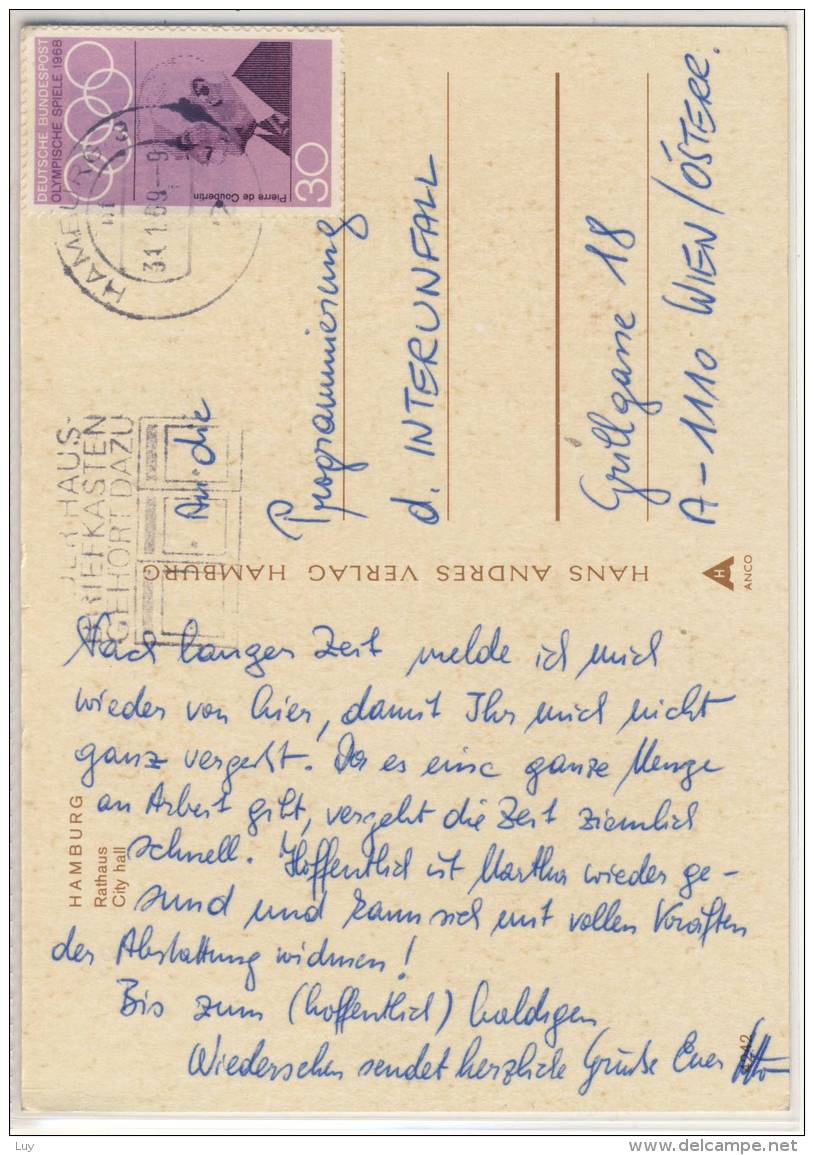 DEUTSCHE BUNDESPOST
OLYMPISCHE SPIELE 1968
Pierre de Coubertin
30
HAMBURG
31.1.69--9
HAUS-
BRIEFKASTEN
GEHÖRT DAZU
An die
Programmierung
d. INTERUNFALL
Grillgasse 18
A-1110 WIEN/ÖSTERR.
HANS ANDRES VERLAG HAMBURG
H
ANCO
HAMBURG
Rathaus
City hall
Nach langer Zeit melde ich mich
wieder von hier, damit Ihr mich nicht
ganz vergeßt. Da es eine ganze Menge
an Arbeit gibt, vergeht die Zeit ziemlich
schnell. Hoffentlich ist Martha wieder ge-
sund und kann sich mit vollen Kräften
der Abstattung widmen!
Bis zum (hoffentlich) baldigen
Wiedersehen sendet herzliche Grüße Euer
4242
Luy
www.delcampe.net